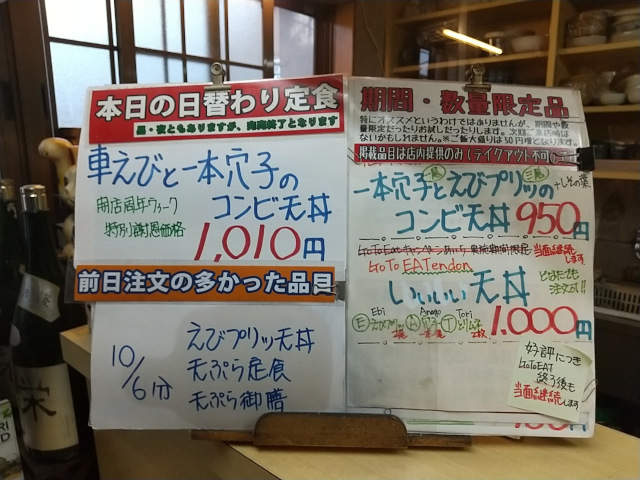 本日の日替わり定食
昼・夜ともありますが、完売終了となります
車えびと一本穴子の
開店周年ウィーク
コンビ天丼
特別謝恩価格
1,010円
前日注文の多かった品目
10/6分
えびプリッツ天丼
天ぷら定食
天ぷら御膳
期間・数量限定品
特にオススメというわけではありませんが、期間や数
量限定だったりお試しだったりします。次回ご来店時は
ないかもしれません。※ご飯大盛りは50円増となります。
掲載品目は店内提供のみ(テイクアウト不可)
一本穴子とえびプリッツの
+しその葉
一尾
三尾
コンビ天丼 950円
当面継続
します。
GoTo EATendon
いいいい天丼
Ebi Anago Tori
Eえびプリッツ A穴子 Tとりムネ
2枚
1.000円
好評につき
GoToEAT
終了後も
当面継続します
栄